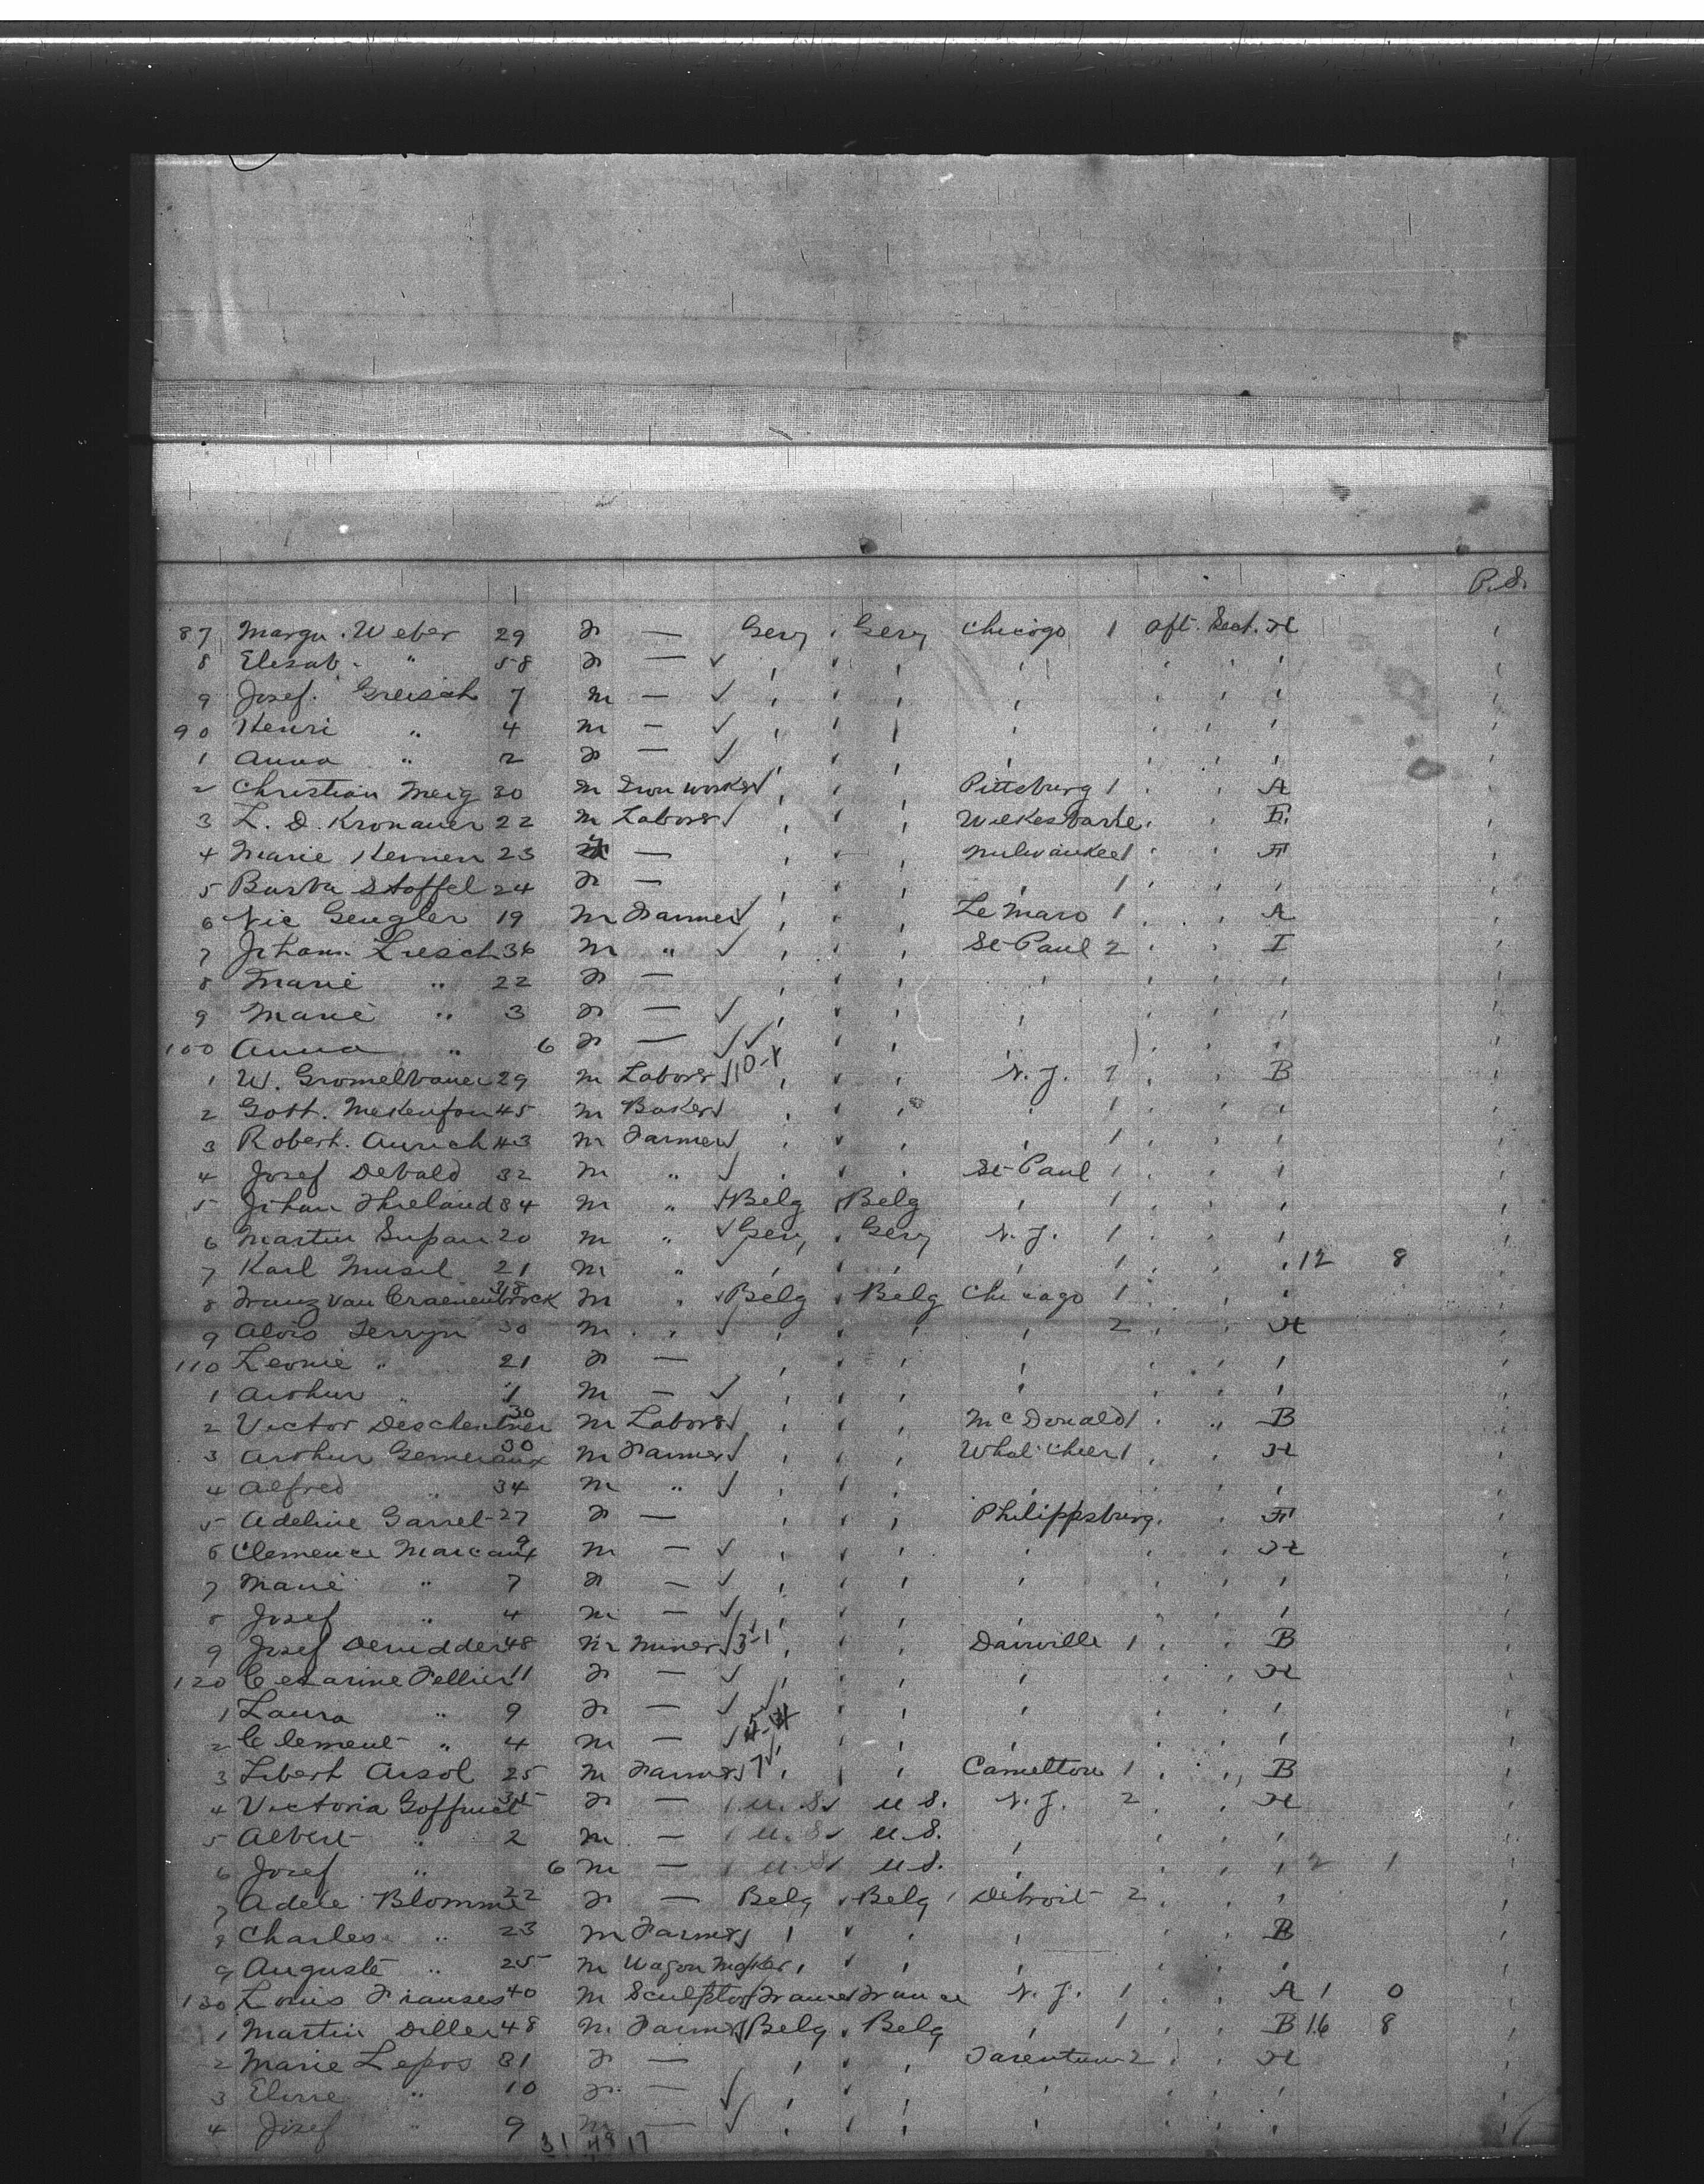 P.S.
87 Margu. Weber 29 F — Gery Gery Chicago 1 Aft. Sect. H
8 Elisab. " 58 F —
9 Josef. Greisch 7 m —
90 Henri " 4 m —
1 Anna " 2 F —
2 Christian Meig 30 m Iron worker Pittsburg 1 A
3 L. D. Kronauer 22 m Labor Wilkesbarre
4 Marie 23 — Milwaukee 1 F
5 Barba Stoffel 24 F — 1
6 Nic Gengler 19 m Farmer Le Mars 1 A
7 Johann Liesch 36 m " St Paul 2 I
8 Marie " 22 F —
9 Marie " 3 F —
100 Anna " 6 F —
1 W. Gromelbauer 29 m Labor 10-1 N. J. 1 B
2 Gott. 45 m Baker 1
3 Robert. Aurich 43 m Farmer 1
4 Josef Debald 32 m " St Paul 1
5 Johan 34 m " Belg Belg 1
6 Martin Supan 20 m " Gery Gery N. J. 1
7 Karl Musil 21 m " 1 12 8
8 Franz van Craenenbrock 38 m " Belg Belg Chicago 1
9 Alois Terryn 30 m " 2 H
110 Leonie " 21 F —
1 Arthur " 1 m —
2 Victor 30 m Labor McDonald 1 B
3 Arthur Gemeraux 30 m Farmer What Cheer 1 H
4 Alfred " 34 m "
5 Adeline Garrel 27 F — Philippsburg F
6 Clemence Marcaux 9 m — H
7 Marie " 7 F —
8 Josef " 4 m —
9 Josef Deridder 48 m Miner 3-1 Danville 1 B
120 Cezarine Tellier 11 F — H
1 Laura " 9 F —
2 Clement " 4 m —
3 Libert Arsol 25 m Farmer Camelton 1 B
4 Victoria 35 F — U. S. U S. N. J. 2 H
5 Albert " 2 m — U. S. U. S.
6 Josef " 6 m — U S U S. 2 1
7 Adele Blomme 22 F — Belg Belg Detroit 2
8 Charles " 23 m Farmer B
9 Auguste " 25 m Wagon Maker
130 Louis Franses 40 m Sculptor France France N. J. 1 A 1 0
1 Martin Diller 48 m Farmer Belg Belg 1 B 16 8
2 Marie Lepos 31 F — Tarentum 2 H
3 Elise " 10 F —
4 Josef " 9 m —
31 48 17